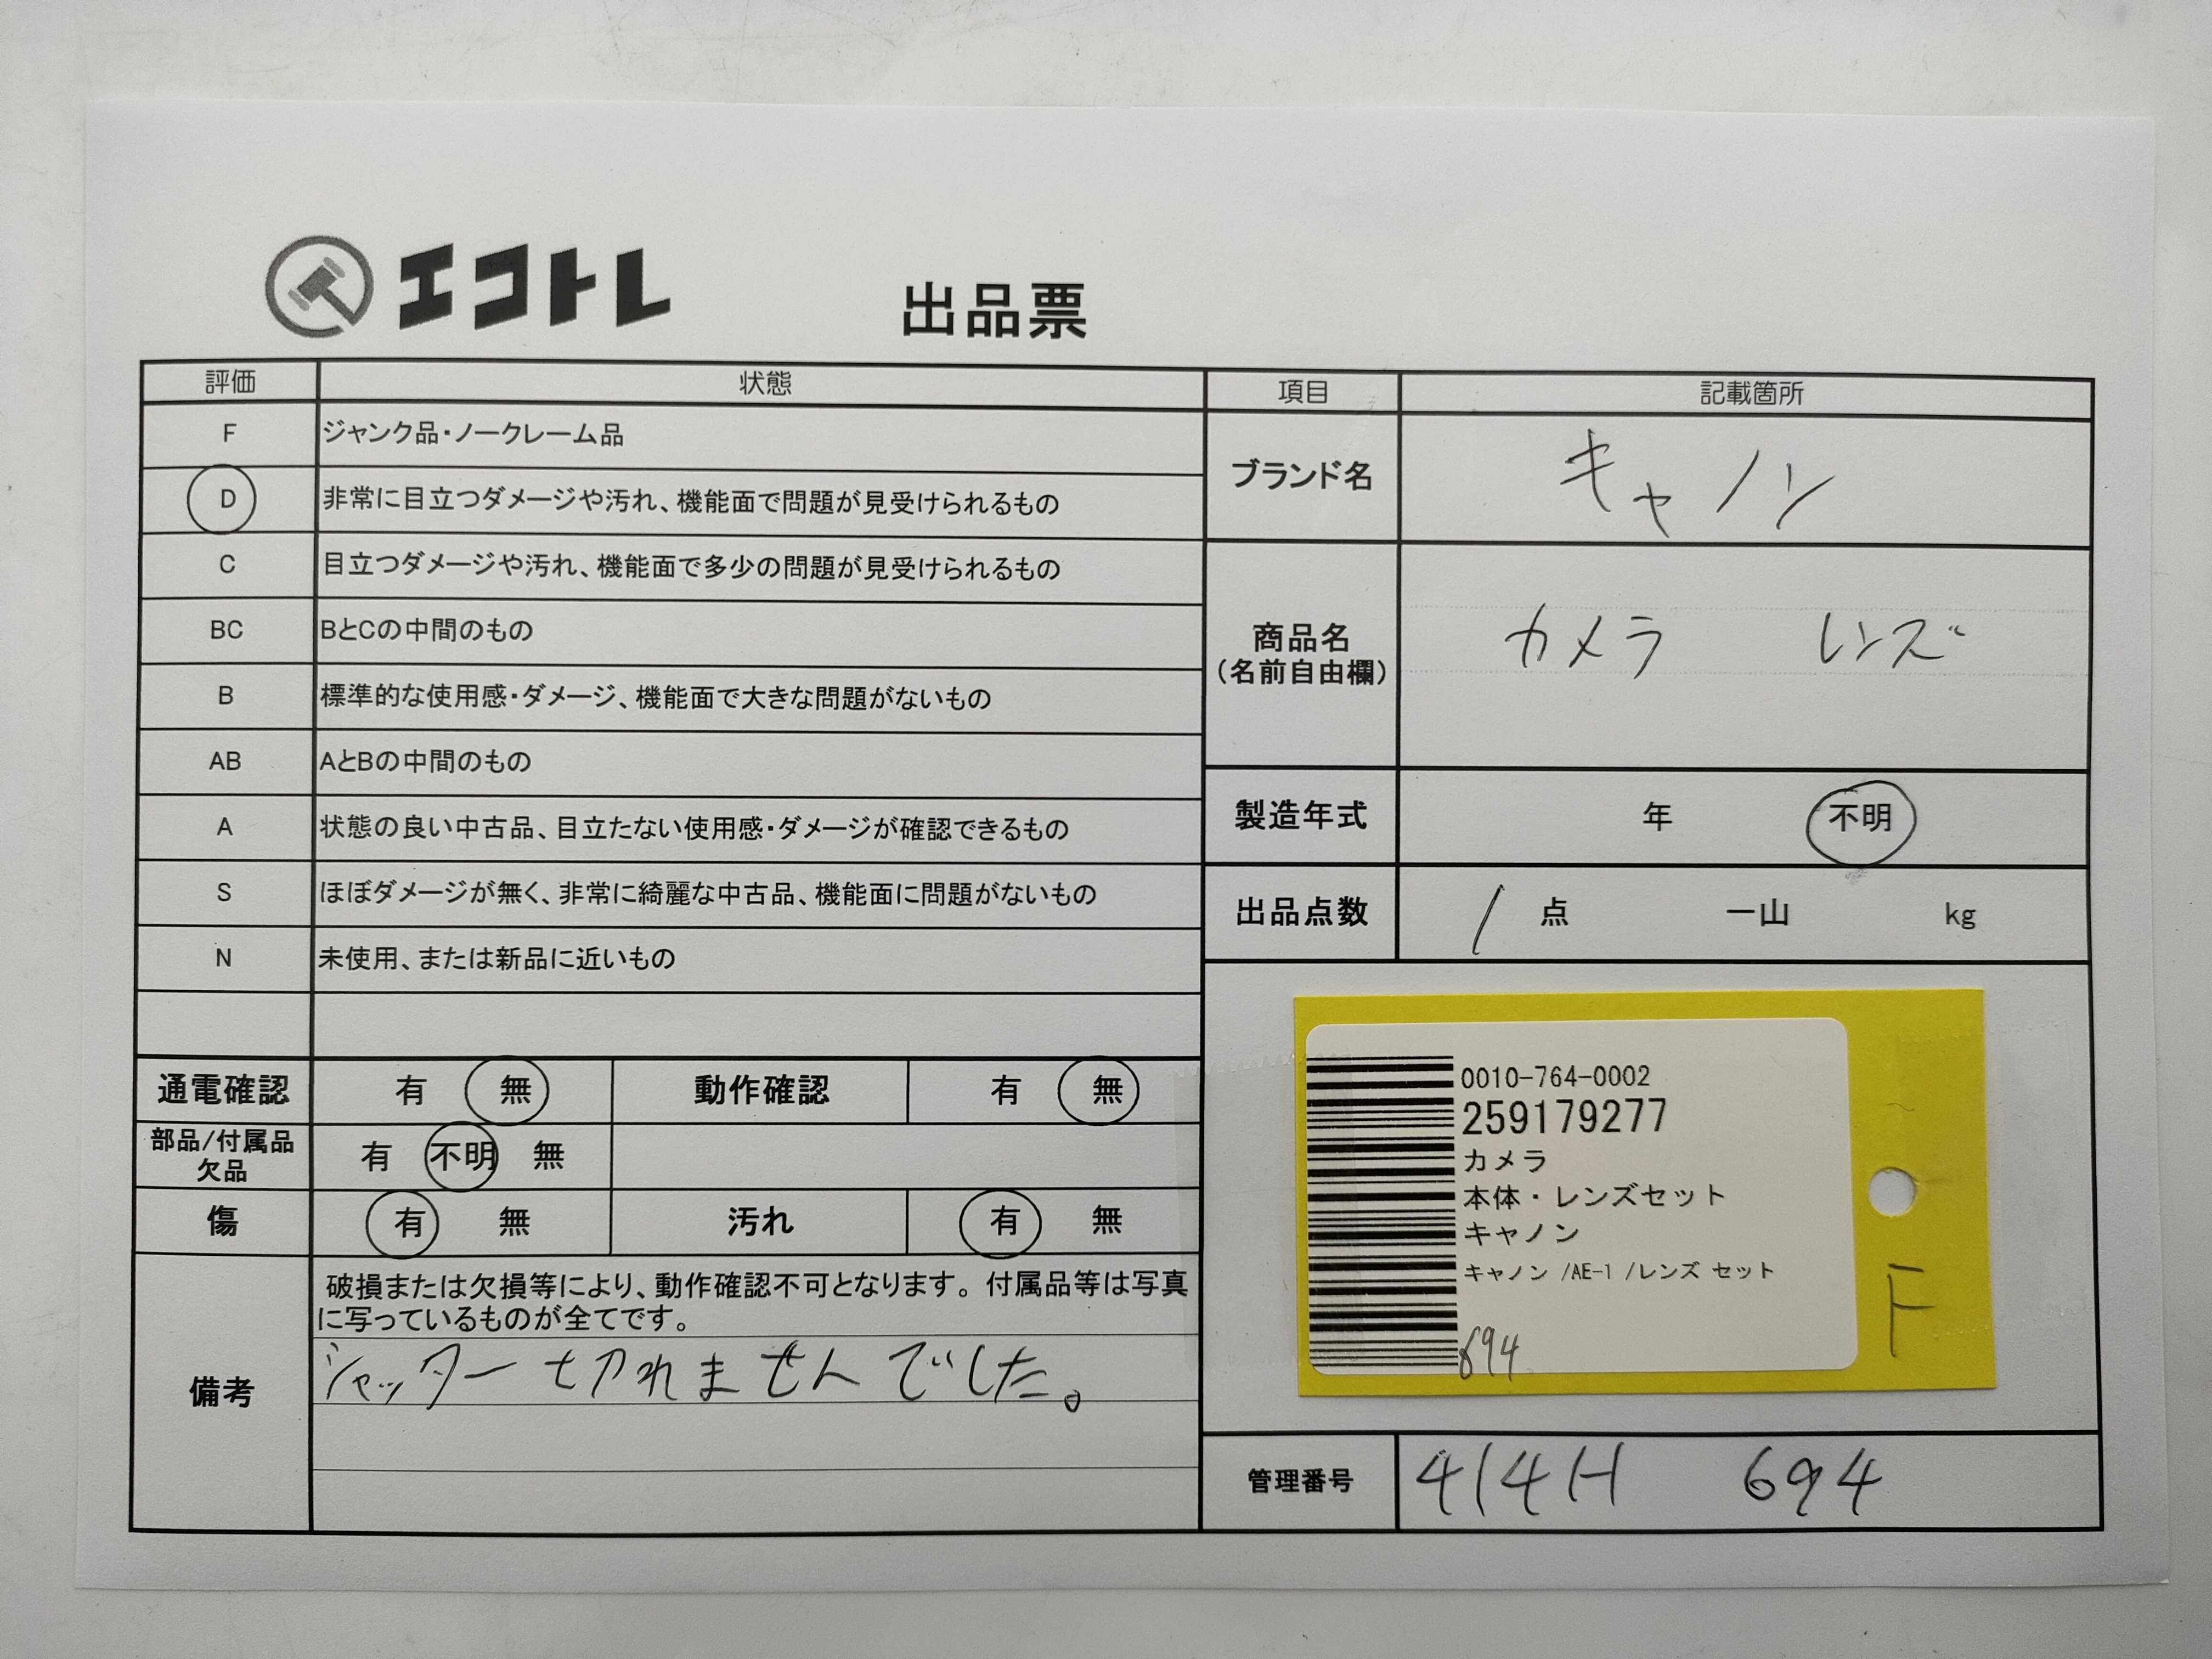 エコトレ
出品票
評価 状態
F ジャンク品・ノークレーム品
D 非常に目立つダメージや汚れ、機能面で問題が見受けられるもの
C 目立つダメージや汚れ、機能面で多少の問題が見受けられるもの
BC BとCの中間のもの
B 標準的な使用感・ダメージ、機能面で大きな問題がないもの
AB AとBの中間のもの
A 状態の良い中古品、目立たない使用感・ダメージが確認できるもの
S ほぼダメージが無く、非常に綺麗な中古品、機能面に問題がないもの
N 未使用、または新品に近いもの
通電確認 有 無 動作確認 有 無
部品/付属品
欠品
有 不明 無
傷 有 無 汚れ 有 無
備考
破損または欠損等により、動作確認不可となります。付属品等は写真
に写っているものが全てです。
シャッター切れませんでした。
項目 記載箇所
ブランド名 キャノン
商品名
(名前自由欄)
カメラ レンズ
製造年式 年 不明
出品点数 1 点 一山 kg
0010-764-0002
259179277
カメラ
本体・レンズセット
キャノン
キャノン /AE-1 /レンズ セット
694
F
管理番号 414H 694